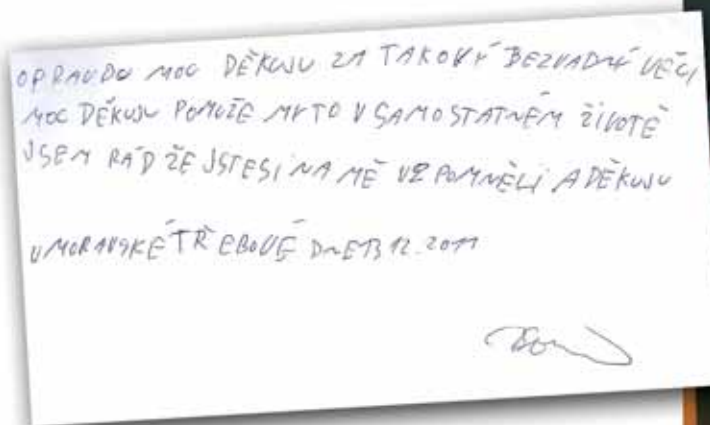 OPRAVDU MOC DĚKUJU ZA TAKOVÝ BEZVADNÝ VĚCI
MOC DĚKUJU POMUŽE MYTO V SAMOSTATNÉM ŽIVOTĚ
JSEM RÁD ŽE JSTESI NA MĚ VZPOMNĚLI A DĚKUJU
V MORAVSKÉ TŘEBOVÉ DNE 13 12. 2011